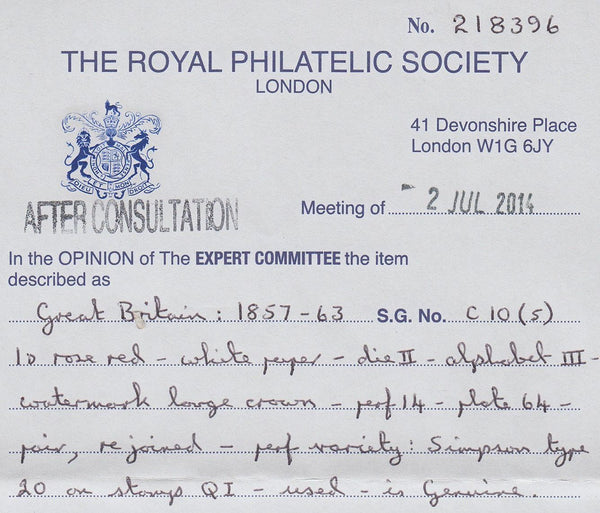 No. 218396
THE ROYAL PHILATELIC SOCIETY
LONDON
41 Devonshire Place
London W1G 6JY
DIEU ET MON DROIT
AFTER CONSULTATION
Meeting of - 2 JUL 2014
In the OPINION of The EXPERT COMMITTEE the item
described as
Great Britain: 1857-63 S.G. No. C10(5)
1D rose red - white paper - die II - alphabet III -
watermark large crown - perf 14 - plate 64 -
pair, rejoined - perf variety: Simpson type
20 on stamps QI - used - is Genuine.